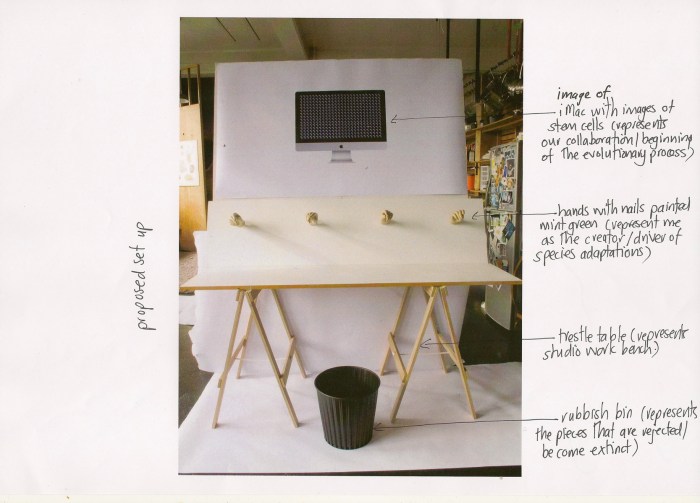 proposed set up
image of
iMac with images of
stem cells (represents
our collaboration/beginning
of the evolutionary process)
hands with nails painted
mint green (represent me
as the creator/driver of
species adaptations)
trestle table (represents
studio work bench)
rubbish bin (represents
the pieces that are rejected/
become extinct)